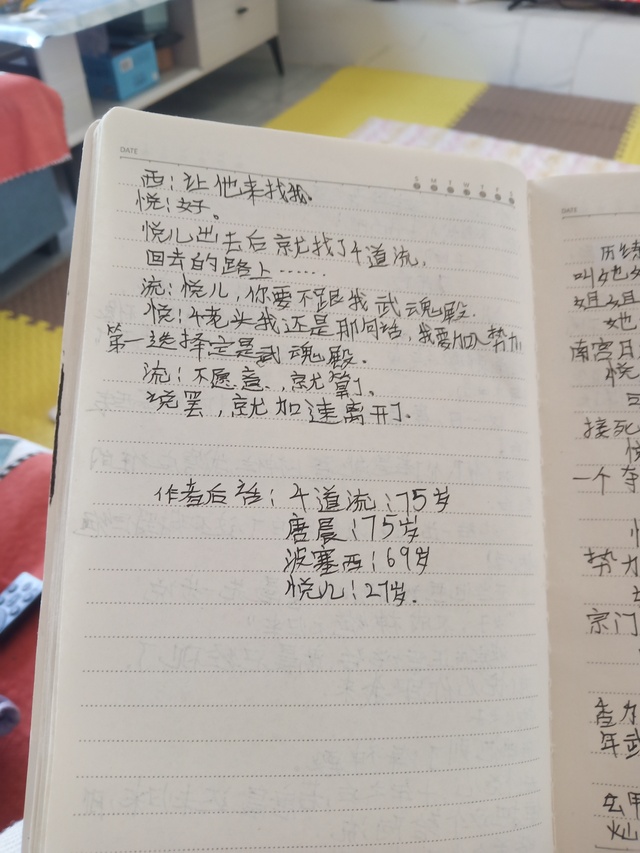 DATE
S M T W T F S
西：让他来找我.
悦：好。
悦儿出去后就找了千道流.
回去的路上……
流：悦儿，你要不跟我武魂殿.
悦：千老头我还是那句话，我要加入势力
第一选择定是武魂殿.
流：不愿意.，就算了.
说罢，就加速离开了.
作者后语：千道流：75岁
唐晨：75岁
波塞西：69岁
悦儿：27岁.
DATE
历练
叫她
姐姐
她
南宫日
悦
接死
一个夺
势力
宗门
查
年武
玄甲
灿